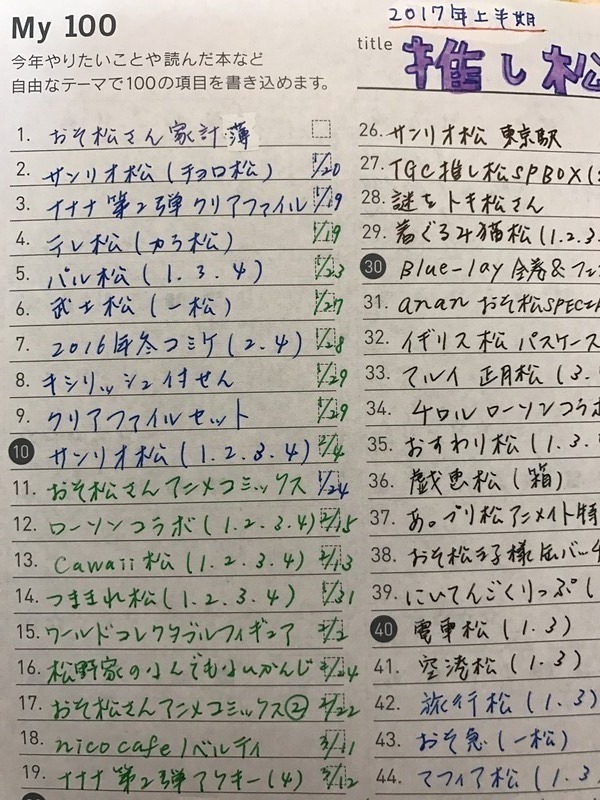 My 100
今年やりたいことや読んだ本など
自由なテーマで100の項目を書き込めます。
1. おそ松さん家計簿
2. サンリオ松(チョロ松) 1/20
3. ナナナ 第2弾 クリアファイル 1/19
4. テレ松(カラ松) 1/19
5. パル松(1.3.4) 1/23
6. 武士松(一松) 1/27
7. 2016年冬コミケ(2.4) 1/28
8. キシリッシュ付せん 1/29
9. クリアファイルセット 1/29
10 サンリオ松(1.2.3.4) 2/4
11. おそ松さんアニメコミックス 1/24
12. ローソンコラボ(1.2.3.4) 2/15
13. Cawaii松(1.2.3.4) 2/13
14. つままれ松(1.2.3.4) 1/31
15. ワールドコレクタブルフィギュア 2/2
16. 松野家のなんでもないかんじ 2/24
17. おそ松さんアニメコミックス② 2/22
18. nico cafe ノベルティ 3/11
19. ナナナ 第2弾アクキー(4) 3/12
2017年上半期
title 推し松
26. サンリオ松 東京駅
27. TGC推し松SPBOX(
28. 謎をトキ松さん
29. 着ぐるみ猫松(1.2.3.
30 Blue-lay 全巻&フィ
31. anan おそ松SPECIA
32. イギリス松 パスケース
33. マルイ 正月松(3.
34. チロル ローソンコラボ
35. おすわり松(1.3.
36. 戯画松(箱)
37. あ。プリ松アニメイト特
38. おそ松王子様缶バッチ
39. にいてんごくりっぷ(
40 電車松(1.3)
41. 空港松(1.3)
42. 旅行松(1.3)
43. おそ急(一松)
44. マフィア松(1.3